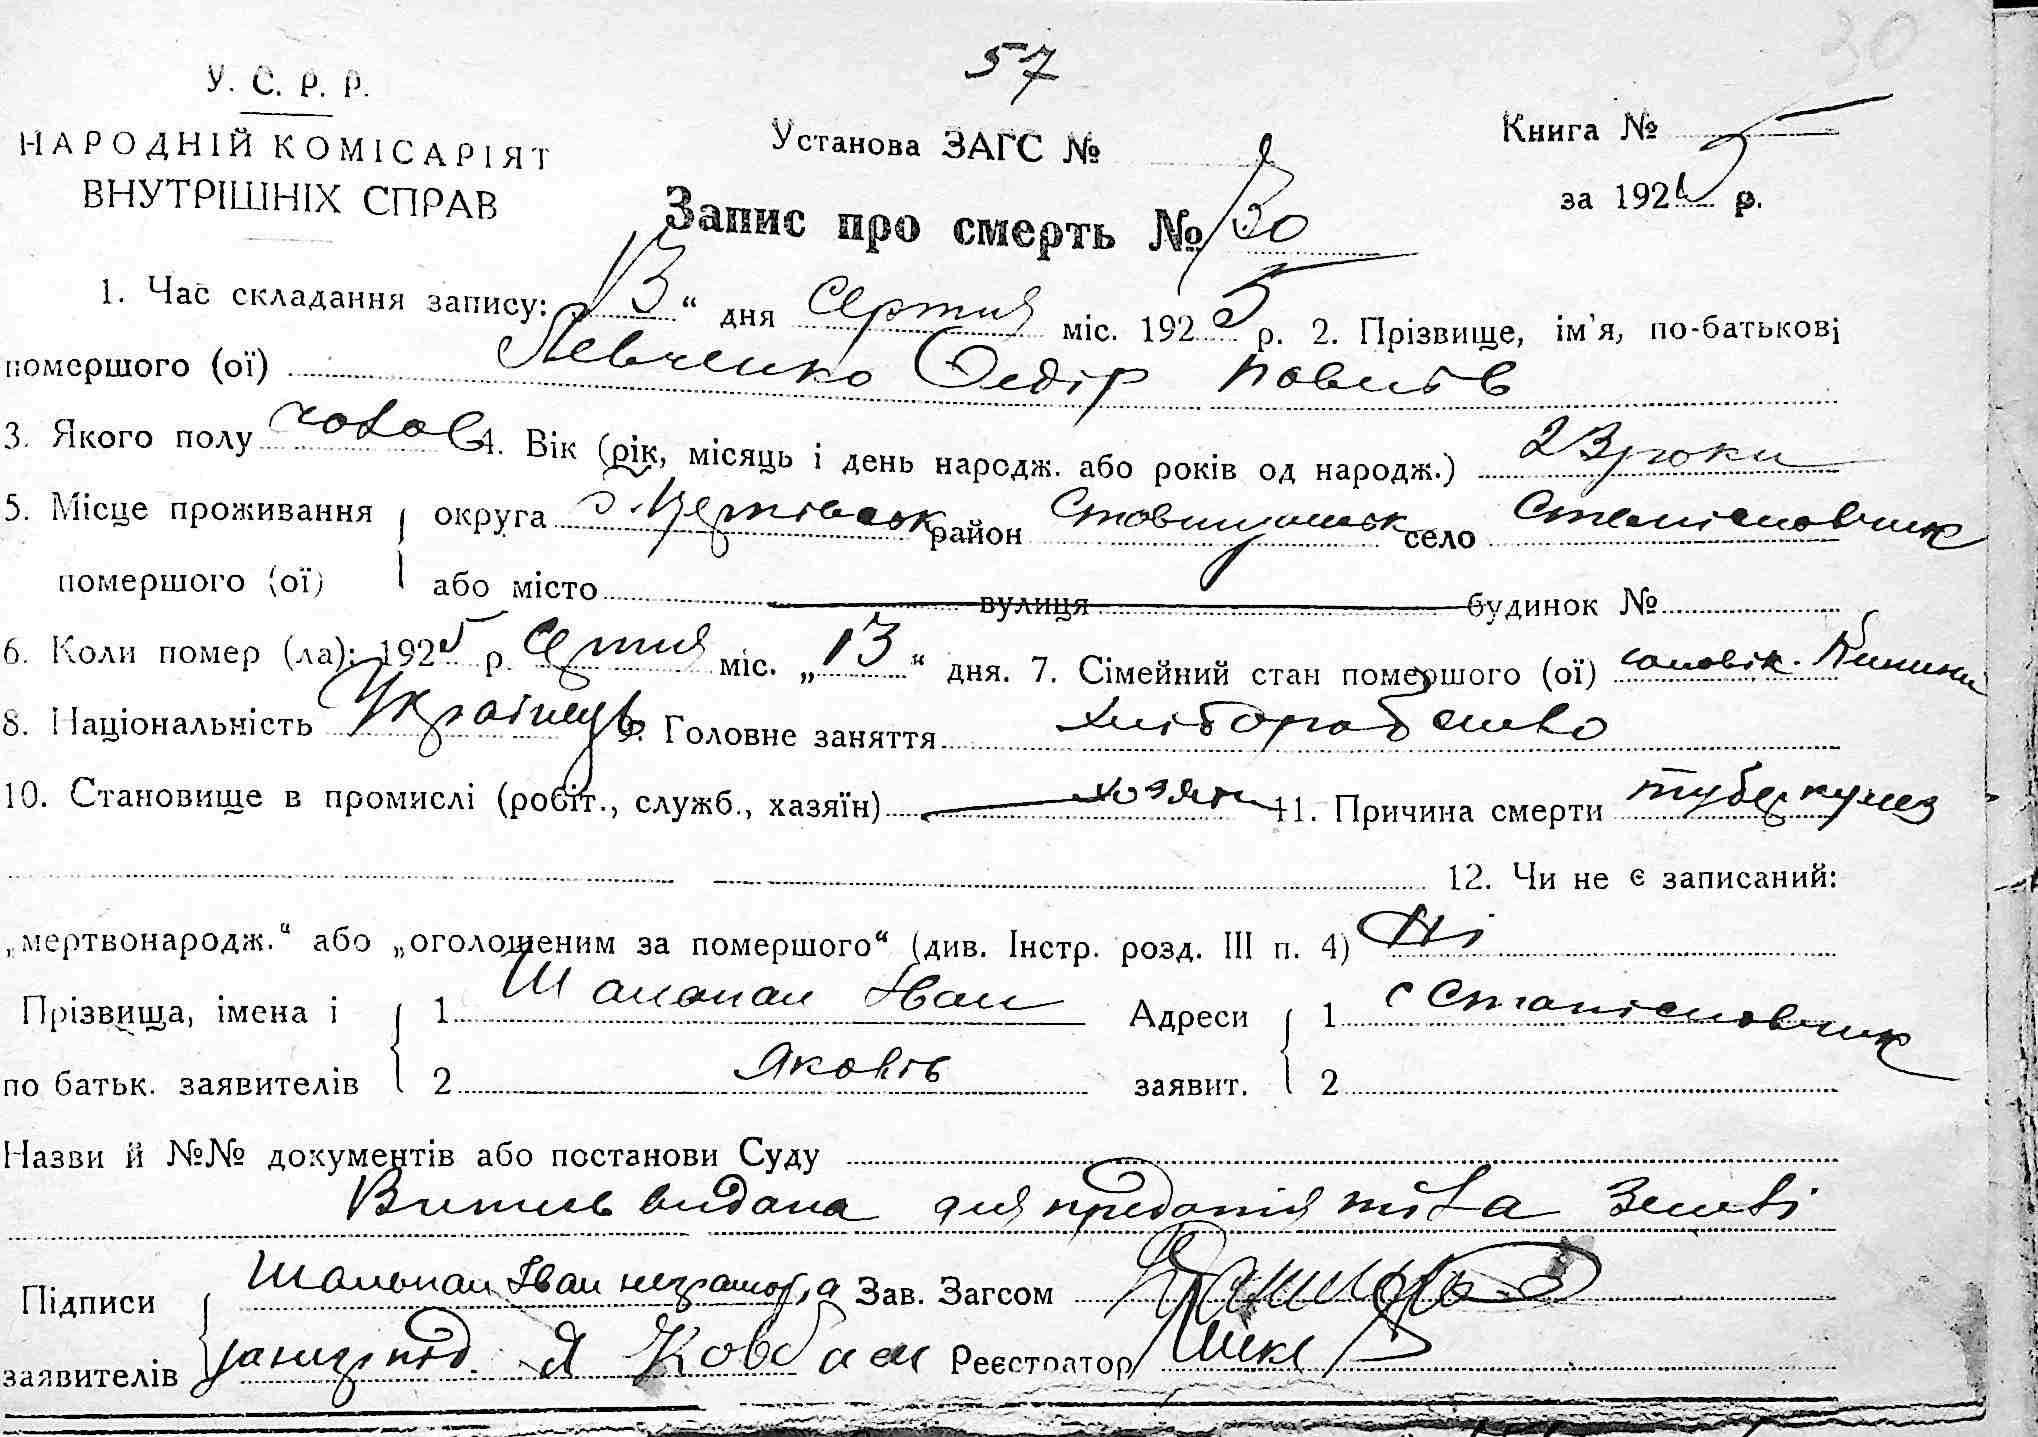 30
57
У. С. Р. Р.
НАРОДНІЙ КОМІСАРІЯТ
ВНУТРІШНІХ СПРАВ
Установа ЗАГС №
Книга №
за 1925 р.
Запис про смерть № 130
1. Час складання запису: 13 “ дня Серпня міс. 1925 р. 2. Прізвище, ім'я, по-батькові
помершого (ої) Левченко Федір Павлів
3. Якого полу чолов 4. Вік (рік, місяць і день народж. або років од народж.) 23 роки
5. Місце проживання округа район село Станіславчик
помершого (ої) або місто вулиця будинок №
6. Коли помер (ла): 1925 р. Серпня міс. „ 13 “ дня. 7. Сімейний стан помершого (ої)
8. Національність Українець 9. Головне заняття хліборобство
10. Становище в промислі (робіт., служб., хазяїн) хозяін 11. Причина смерти туберкульоз
12. Чи не є записаний:
„мертвонародж.“ або „оголошеним за помершого“ (див. Інстр. розд. III п. 4) Ні
Прізвища, імена і 1 Іван Адреси 1 с Станіславчик
по батьк. заявителів 2 Яковів заявит. 2
Назви й №№ документів або постанови Суду
Витяг видана для придания тіла Землі
Підписи Іван Зав. Загсом
заявителів Я Ковбас Реєстратор